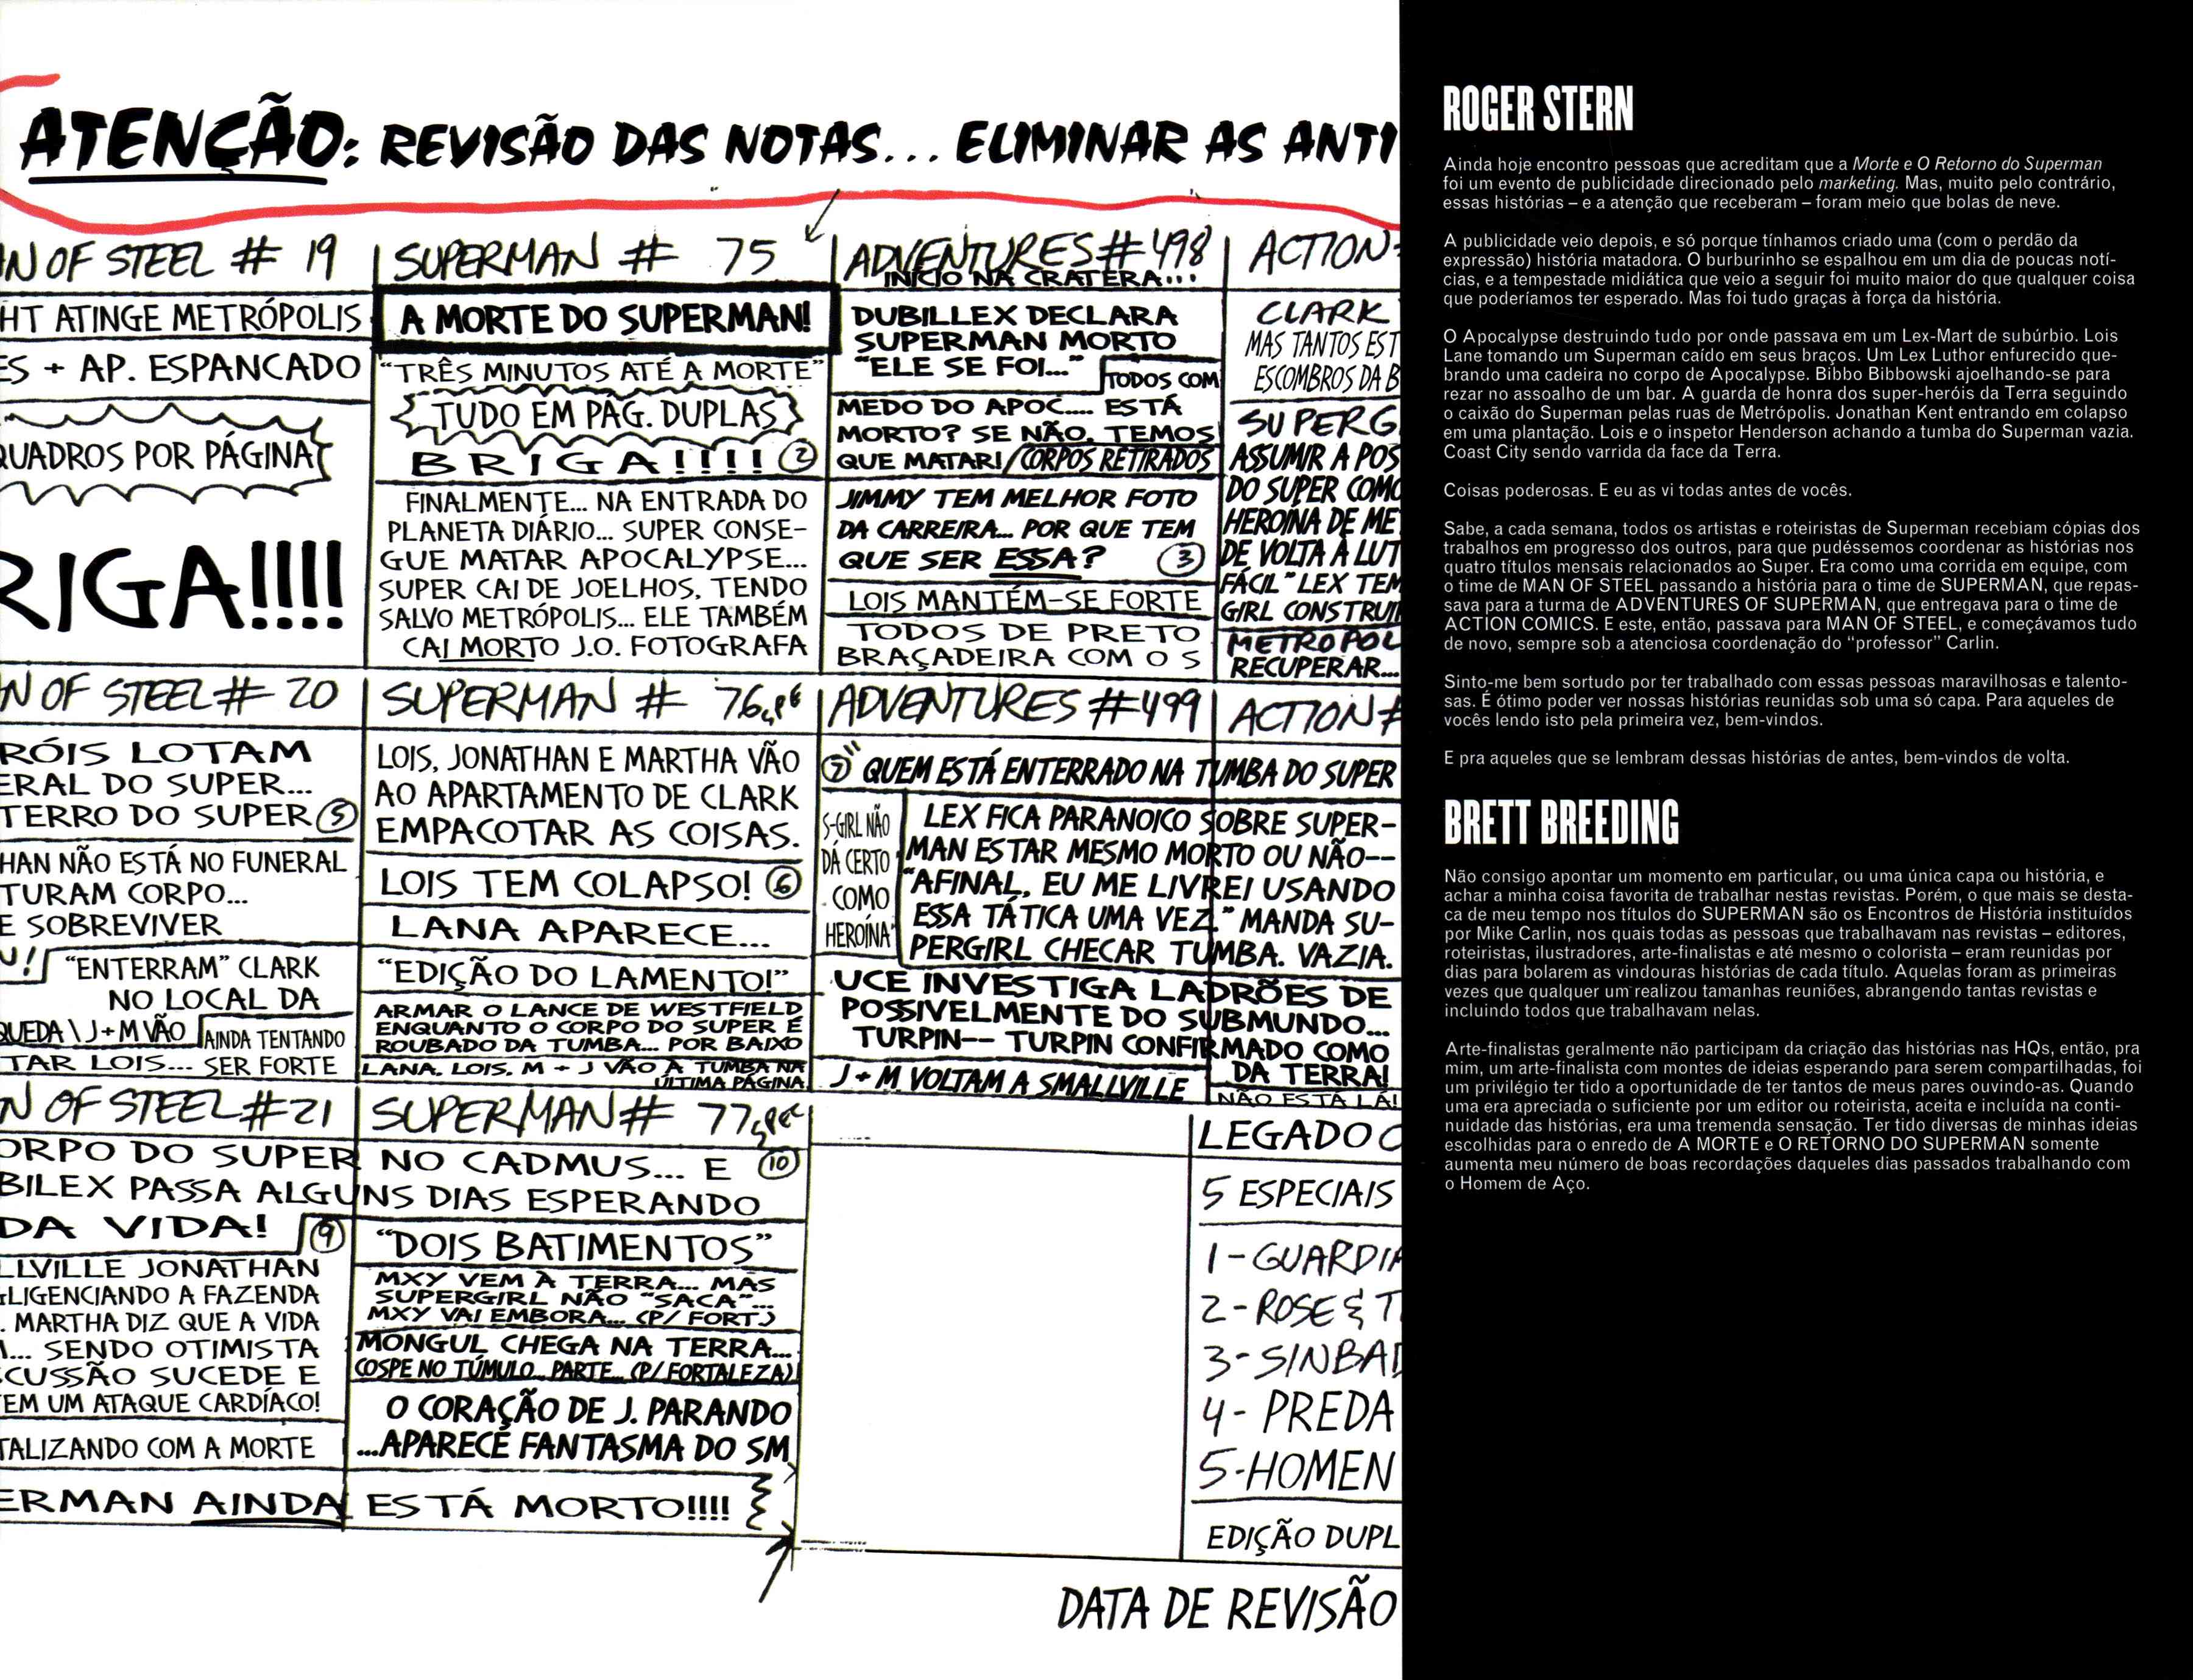 ATENÇÃO: REVISÃO DAS NOTAS... ELIMINAR AS ANTI
N OF STEEL # 19
HT ATINGE METRÓPOLIS
ES + AP. ESPANCADO
QUADROS POR PÁGINA
RIGA!!!!
SUPERMAN # 75
A MORTE DO SUPERMAN!
"TRÊS MINUTOS ATÉ A MORTE"
TUDO EM PÁG. DUPLAS
BRIGA!!!! 2
FINALMENTE... NA ENTRADA DO
PLANETA DIÁRIO... SUPER CONSE-
GUE MATAR APOCALYPSE...
SUPER CAI DE JOELHOS, TENDO
SALVO METRÓPOLIS... ELE TAMBÉM
CAI MORTO J.O. FOTOGRAFA
ADVENTURES # 498
INÍCIO NA CRATERA...
DUBILLEX DECLARA
SUPERMAN MORTO
"ELE SE FOI..."
TODOS COM
MEDO DO APOC.... ESTÁ
MORTO? SE NÃO, TEMOS
QUE MATAR! CORPOS RETIRADOS
JIMMY TEM MELHOR FOTO
DA CARREIRA... POR QUE TEM
QUE SER ESSA? 3
LOIS MANTÉM-SE FORTE
TODOS DE PRETO
BRAÇADEIRA COM O S
ACTION
CLARK
MAS TANTOS EST
ESCOMBROS DA B
SUPERG
ASSUMIR A POS
DO SUPER COMO
HEROÍNA DE ME
DE VOLTA À LUT
FÁCIL" LEX TEM
GIRL CONSTRUI
METROPOL
RECUPERAR...
N OF STEEL # 20
RÓIS LOTAM
ERAL DO SUPER...
TERRO DO SUPER 5
HAN NÃO ESTÁ NO FUNERAL
TURAM CORPO...
E SOBREVIVER
U! "ENTERRAM" CLARK
NO LOCAL DA
QUEDA \ J+M VÃO
AINDA TENTANDO
TAR LOIS... SER FORTE
SUPERMAN # 76
LOIS, JONATHAN E MARTHA VÃO
AO APARTAMENTO DE CLARK
EMPACOTAR AS COISAS.
LOIS TEM COLAPSO! 6
LANA APARECE...
"EDIÇÃO DO LAMENTO!"
ARMAR O LANCE DE WESTFIELD
ENQUANTO O CORPO DO SUPER É
ROUBADO DA TUMBA... POR BAIXO
LANA, LOIS, M + J VÃO À TUMBA NA
ÚLTIMA PÁGINA
ADVENTURES # 499
7 QUEM ESTÁ ENTERRADO NA TUMBA DO SUPER
S-GIRL NÃO
DÁ CERTO
COMO
HEROÍNA
LEX FICA PARANOICO SOBRE SUPER-
MAN ESTAR MESMO MORTO OU NÃO--
"AFINAL, EU ME LIVREI USANDO
ESSA TÁTICA UMA VEZ." MANDA SU-
PERGIRL CHECAR TUMBA. VAZIA.
UCE INVESTIGA LADRÕES DE
POSSIVELMENTE DO SUBMUNDO...
TURPIN-- TURPIN CONFIRMADO COMO
DA TERRA!
J + M VOLTAM A SMALLVILLE
NÃO ESTÁ LÁ!
ACTION #
N OF STEEL # 21
ORPO DO SUPER NO CADMUS... E 10
BILEX PASSA ALGUNS DIAS ESPERANDO
DA VIDA! 9
LLVILLE JONATHAN
GLIGENCIANDO A FAZENDA
. MARTHA DIZ QUE A VIDA
... SENDO OTIMISTA
CUSSÃO SUCEDE E
TEM UM ATAQUE CARDÍACO!
TALIZANDO COM A MORTE
ERMAN AINDA ESTÁ MORTO!!!!
SUPERMAN # 77
"DOIS BATIMENTOS"
MXY VEM À TERRA... MAS
SUPERGIRL NÃO "SACA"...
MXY VAI EMBORA... (P/ FORT.)
MONGUL CHEGA NA TERRA...
COSPE NO TÚMULO... PARTE... (P/ FORTALEZA)
O CORAÇÃO DE J. PARANDO
...APARECE FANTASMA DO SM
LEGADO
5 ESPECIAIS
1- GUARDIA
2- ROSE & T
3- SINBAD
4- PREDA
5- HOMEN
EDIÇÃO DUPL
DATA DE REVISÃO
ROGER STERN
Ainda hoje encontro pessoas que acreditam que a Morte e O Retorno do Superman
foi um evento de publicidade direcionado pelo marketing. Mas, muito pelo contrário,
essas histórias – e a atenção que receberam – foram meio que bolas de neve.
A publicidade veio depois, e só porque tínhamos criado uma (com o perdão da
expressão) história matadora. O burburinho se espalhou em um dia de poucas notí-
cias, e a tempestade midiática que veio a seguir foi muito maior do que qualquer coisa
que poderíamos ter esperado. Mas foi tudo graças à força da história.
O Apocalypse destruindo tudo por onde passava em um Lex-Mart de subúrbio. Lois
Lane tomando um Superman caído em seus braços. Um Lex Luthor enfurecido que-
brando uma cadeira no corpo de Apocalypse. Bibbo Bibbowski ajoelhando-se para
rezar no assoalho de um bar. A guarda de honra dos super-heróis da Terra seguindo
o caixão do Superman pelas ruas de Metrópolis. Jonathan Kent entrando em colapso
em uma plantação. Lois e o inspetor Henderson achando a tumba do Superman vazia.
Coast City sendo varrida da face da Terra.
Coisas poderosas. E eu as vi todas antes de vocês.
Sabe, a cada semana, todos os artistas e roteiristas de Superman recebiam cópias dos
trabalhos em progresso dos outros, para que pudéssemos coordenar as histórias nos
quatro títulos mensais relacionados ao Super. Era como uma corrida em equipe, com
o time de MAN OF STEEL passando a história para o time de SUPERMAN, que repas-
sava para a turma de ADVENTURES OF SUPERMAN, que entregava para o time de
ACTION COMICS. E este, então, passava para MAN OF STEEL, e começávamos tudo
de novo, sempre sob a atenciosa coordenação do "professor" Carlin.
Sinto-me bem sortudo por ter trabalhado com essas pessoas maravilhosas e talento-
sas. É ótimo poder ver nossas histórias reunidas sob uma só capa. Para aqueles de
vocês lendo isto pela primeira vez, bem-vindos.
E pra aqueles que se lembram dessas histórias de antes, bem-vindos de volta.
BRETT BREEDING
Não consigo apontar um momento em particular, ou uma única capa ou história, e
achar a minha coisa favorita de trabalhar nestas revistas. Porém, o que mais se desta-
ca de meu tempo nos títulos do SUPERMAN são os Encontros de História instituídos
por Mike Carlin, nos quais todas as pessoas que trabalhavam nas revistas – editores,
roteiristas, ilustradores, arte-finalistas e até mesmo o colorista – eram reunidas por
dias para bolarem as vindouras histórias de cada título. Aquelas foram as primeiras
vezes que qualquer um realizou tamanhas reuniões, abrangendo tantas revistas e
incluindo todos que trabalhavam nelas.
Arte-finalistas geralmente não participam da criação das histórias nas HQs, então, pra
mim, um arte-finalista com montes de ideias esperando para serem compartilhadas, foi
um privilégio ter tido a oportunidade de ter tantos de meus pares ouvindo-as. Quando
uma era apreciada o suficiente por um editor ou roteirista, aceita e incluída na conti-
nuidade das histórias, era uma tremenda sensação. Ter tido diversas de minhas ideias
escolhidas para o enredo de A MORTE e O RETORNO DO SUPERMAN somente
aumenta meu número de boas recordações daqueles dias passados trabalhando com
o Homem de Aço.